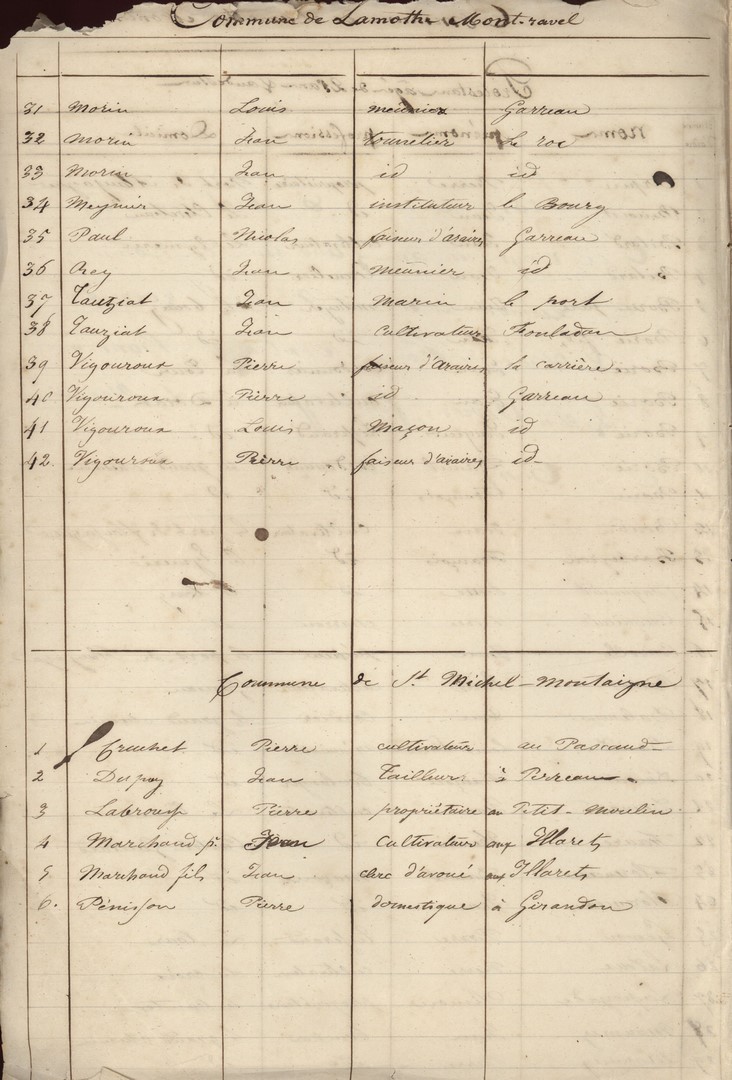 Commune de Lamothe Mont-ravel
31 Morin Louis meunier Garreau
32 Morin Jean tonnelier Le roc
33 Morin Jean id id
34 Meynier Jean instituteur le Bourg
35 Paul Nicolas faiseur d'araires Garreau
36 Rey Jean meunier id
37 Tauziat Jean Marin le port
38 Tauziat Jean Cultivateur Fonladau
39 Vigouroux Pierre faiseur d'araires la carrière
40 Vigouroux Pierre id Garreau
41 Vigouroux Louis Maçon id
42. Vigouroux Pierre faiseur d'araires id
Commune de St. Michel-Montaigne
1 Cruchet Pierre cultivateur au Pascaud
2 Dupuy Jean Tailleur à Perreau
3 Labrousse Pierre propriétaire au Petit-Moulin
4 Marchand p. Jean Cultivateur aux Illarets
5 Marchand fils Jean clerc d'avoué aux Illarets
6. Pénisson Pierre domestique à Girandon